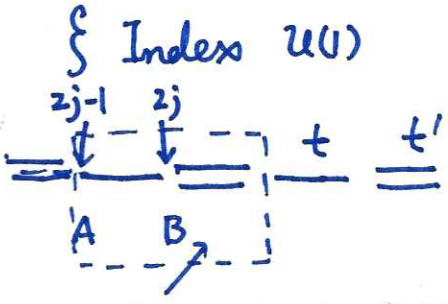 § Index U(1)
2j-1 2j
t t'
A B